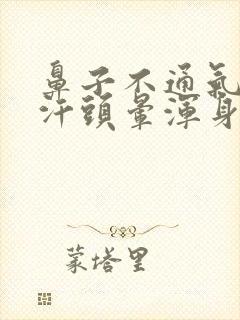 鼻子不通氣
汗頭暈渾身
蒙塔里